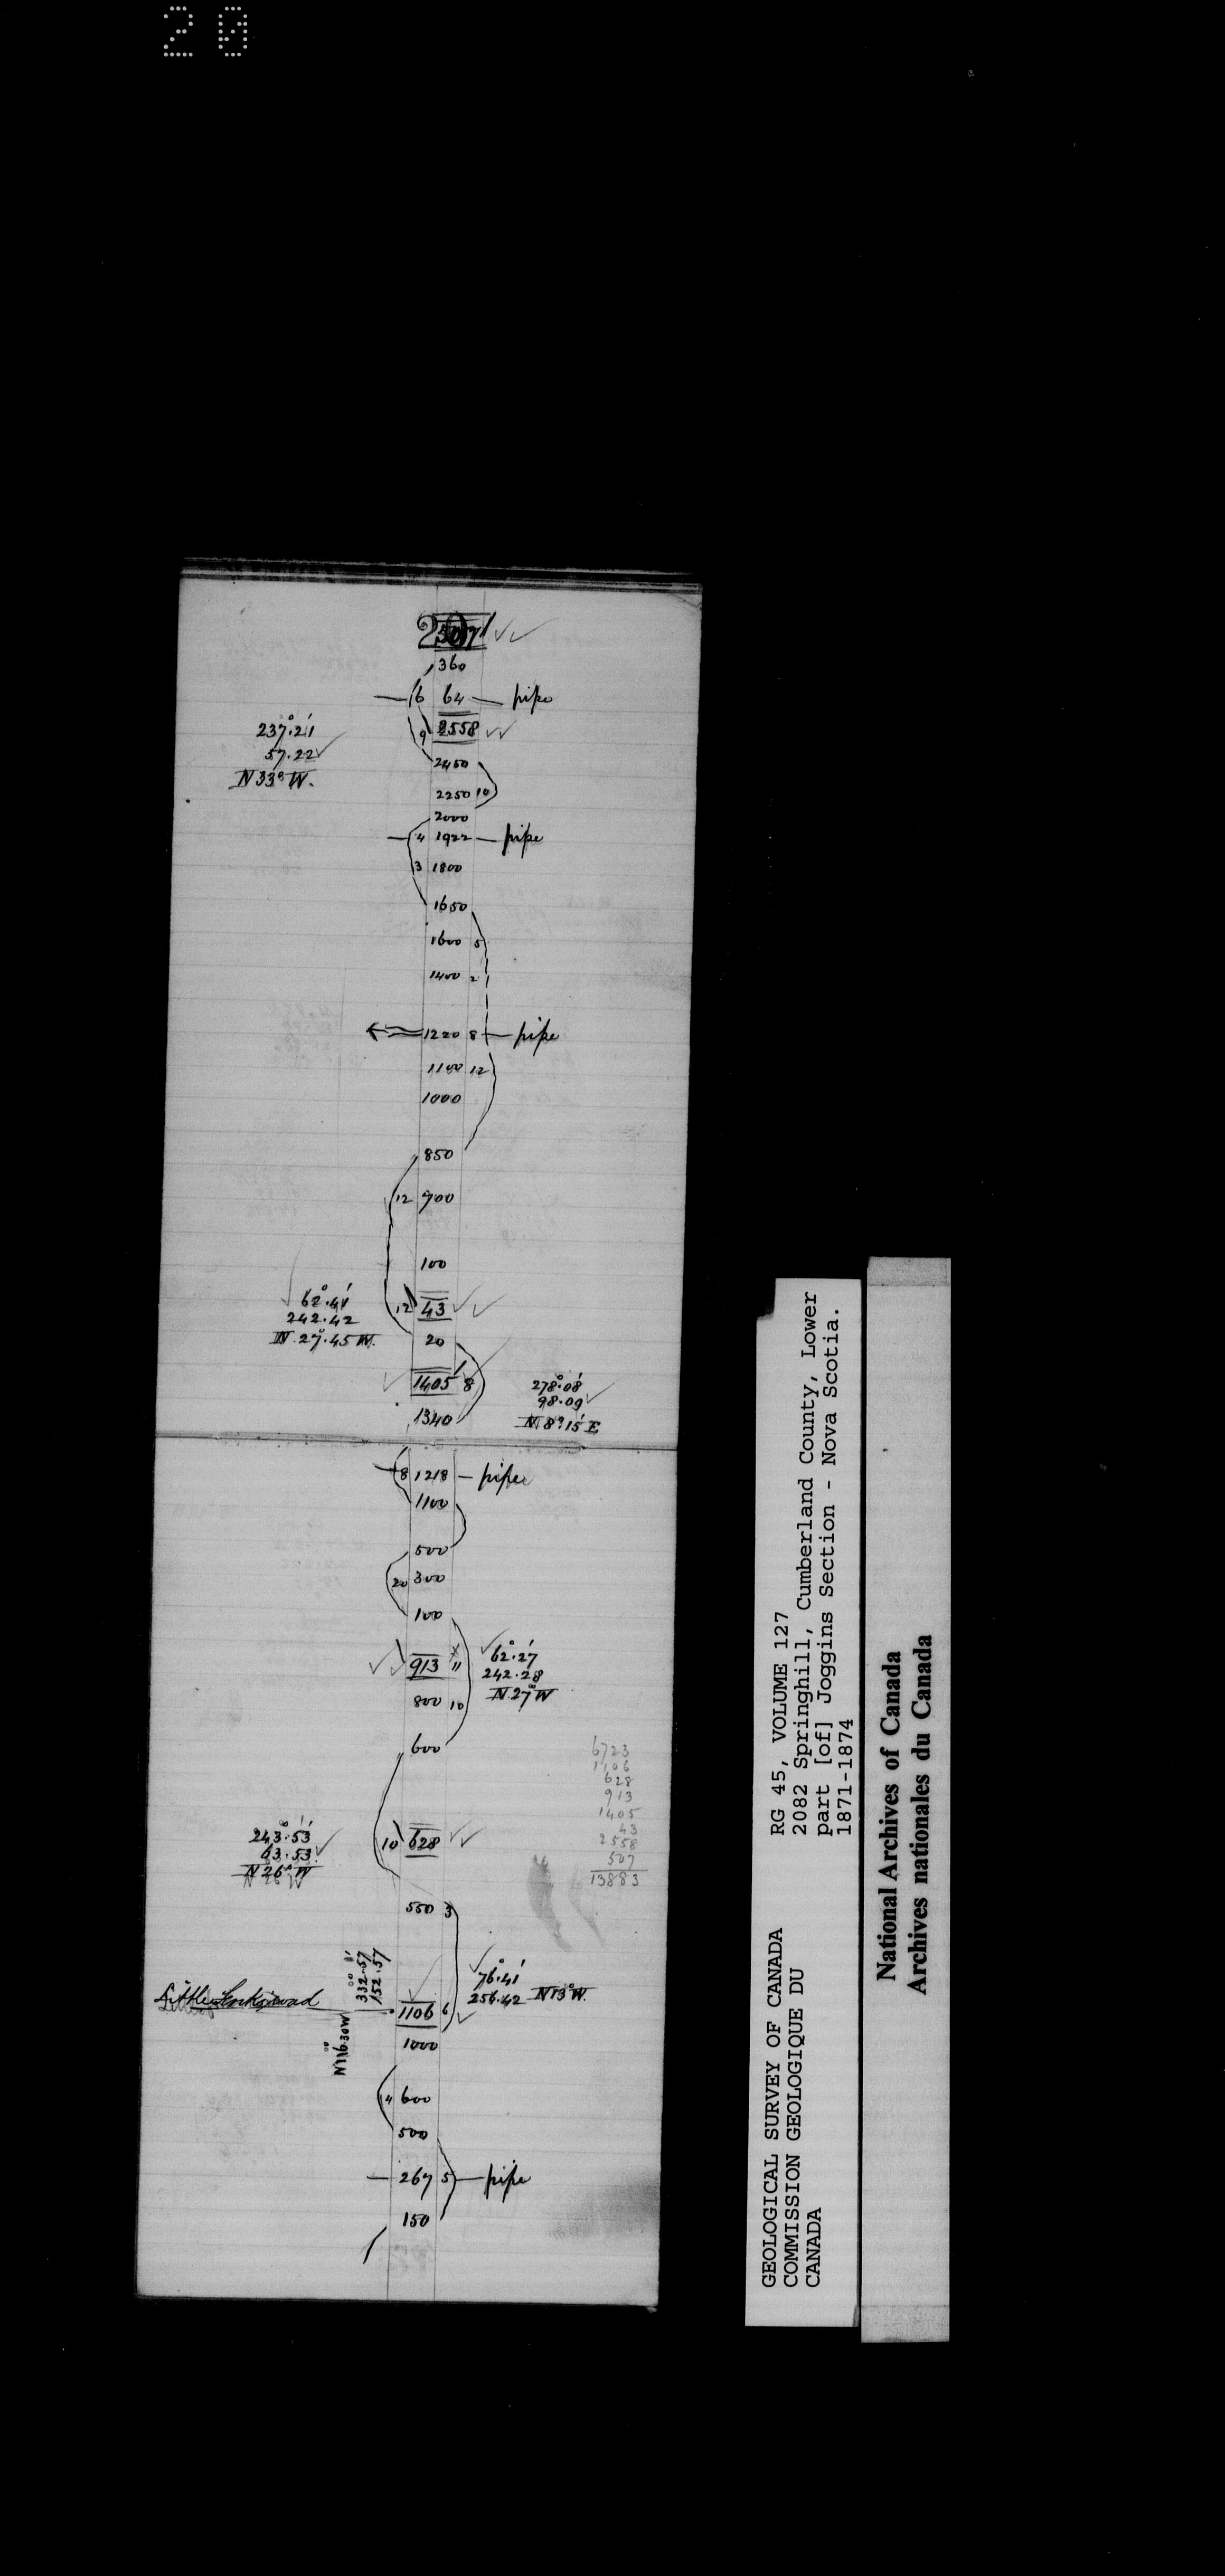 20
20
507
360
6 64 pipe
237°.21'
9 2558
57.22
2450
N 33° W.
2250 10
2000
4 1922 pipe
3 1800
1650
1600 5
1400 2
1220 8 pipe
1100 12
1000
850
12 700
100
62°.41'
12 43
242.42
N.27°.45 W.
20
1405 8
278°.08'
98.09
1340
N 8°15' E
8 1218 pipe
1100
500
20 300
100
62°.27'
913 11
242.28
N.27° W
800 10
600
6723
1106
628
913
1405
43
2558
507
13883
243°.53'
10 628
63.53
N 26° W
N 26 W
550 3
332.57
152.57
76°.41'
256.42 N 13° W.
Little Forks road
1106 6
N 116.30W
1000
4 600
500
267 5 pipe
150
GEOLOGICAL SURVEY OF CANADA
COMMISSION GEOLOGIQUE DU
CANADA
RG 45, VOLUME 127
2082 Springhill, Cumberland County, Lower
part [of] Joggins Section - Nova Scotia.
1871-1874
National Archives of Canada
Archives nationales du Canada